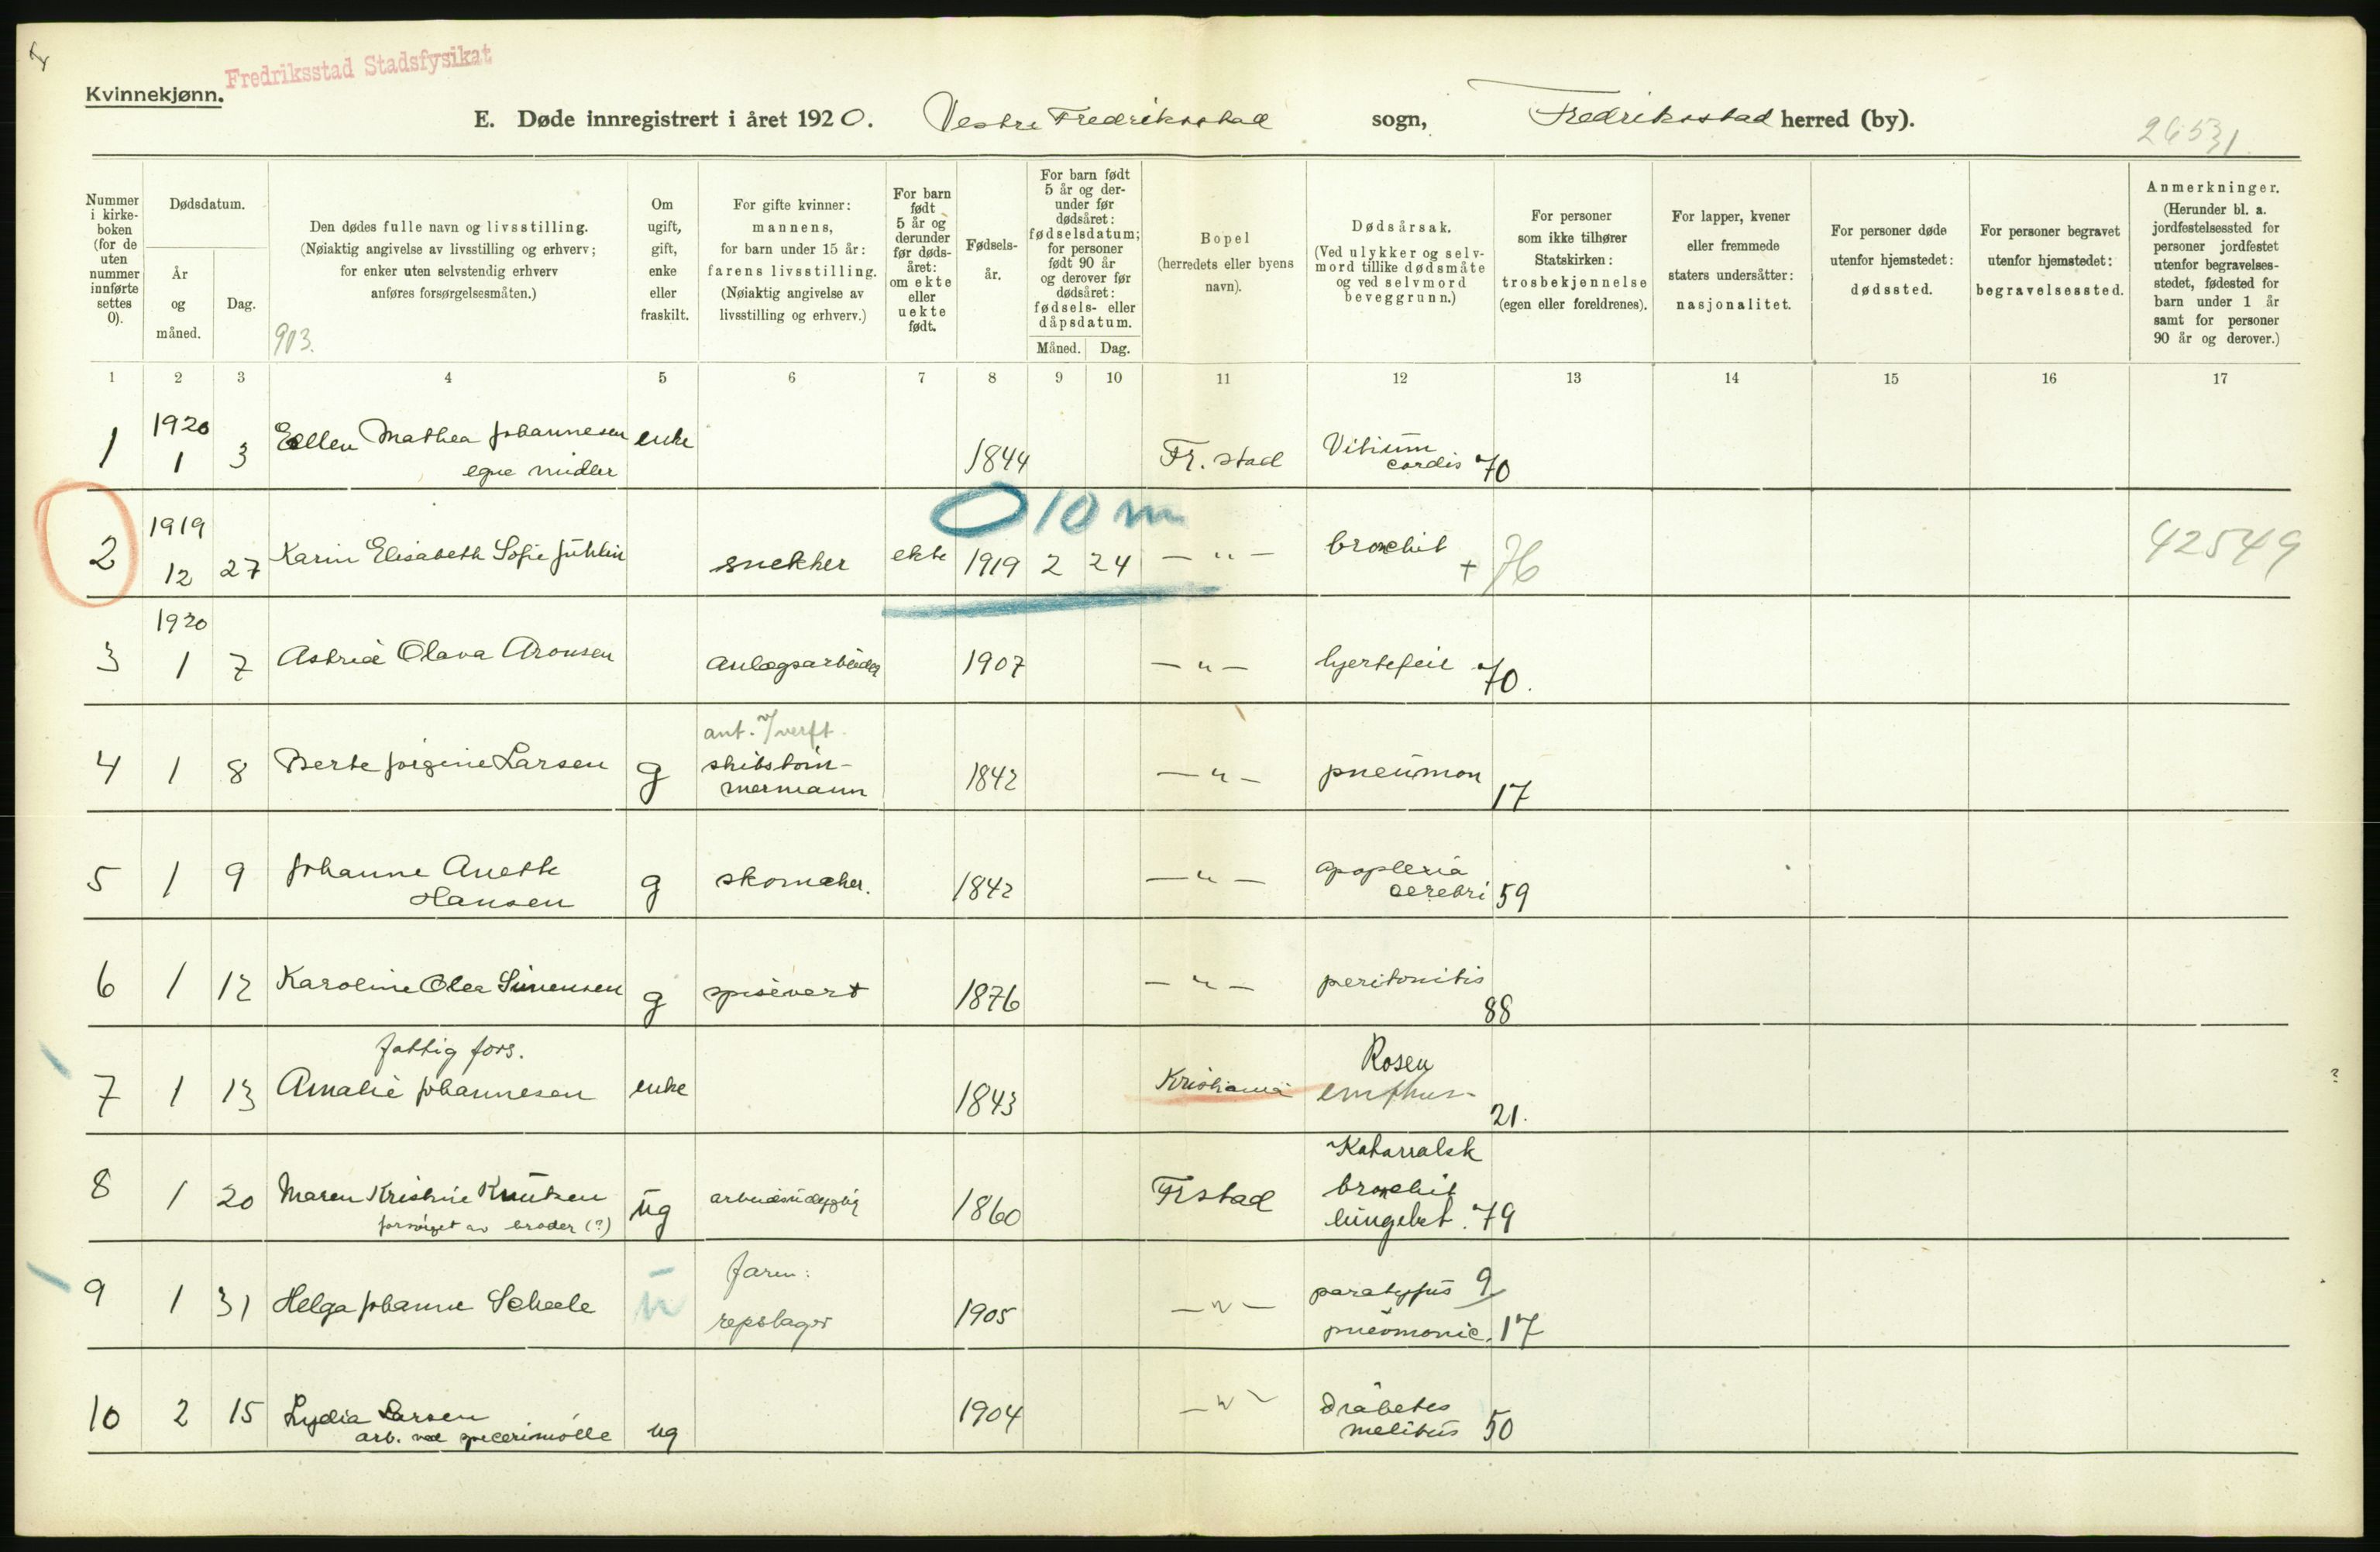 Fredriksstad Stadsfysikat
Kvinnekjønn.
E. Døde innregistrert i året 1920. Vestre Fredriksstad sogn, Fredriksstad herred (by).
26531.
Nummer i kirke- boken (for de uten nummer innførte settes 0).
Dødsdatum.
År og måned.
Dag.
Den dødes fulle navn og livsstilling.
(Nøiaktig angivelse av livsstilling og erhverv;
for enker uten selvstendig erhverv
anføres forsørgelsesmåten.)
903.
Om ugift, gift, enke eller fraskilt.
For gifte kvinner:
mannens,
for barn under 15 år:
farens livsstilling.
(Nøiaktig angivelse av
livsstilling og erhverv.)
For barn født 5 år og derunder før døds- året: om ekte eller uekte født.
Fødsels- år.
For barn født 5 år og der- under før dødsåret: fødselsdatum; for personer født 90 år og derover før dødsåret: fødsels- eller dåpsdatum.
Måned. Dag.
Bopel
(herredets eller byens
navn).
Dødsårsak.
(Ved ulykker og selv-
mord tillike dødsmåte
og ved selvmord
beveggrunn.)
For personer
som ikke tilhører
Statskirken:
trosbekjennelse
(egen eller foreldrenes).
For lapper, kvener
eller fremmede
staters undersåtter:
nasjonalitet.
For personer døde
utenfor hjemstedet:
dødssted.
For personer begravet
utenfor hjemstedet:
begravelsessted.
Anmerkninger.
(Herunder bl. a.
jordfestelsessted for
personer jordfestet
utenfor begravelses-
stedet, fødested for
barn under 1 år
samt for personer
90 år og derover.)
1 2 3 4 5 6 7 8 9 10 11 12 13 14 15 16 17
1 1920 1 3 Ellen Mathea Johannesen enke 1844 Fr. stad Vitium
egne midler cordis 70
O 10 m
2 1919 12 27 Karin Elisabeth Sofie Juhlin snekker ekte 1919 2 24 — " — bronchit + 76 42549
3 1920 1 7 Astrid Olava Aronsen anlegsarbeider 1907 — " — hjertefeil 70.
ant. v/verft.
4 1 8 Berte Jørgine Larsen g skibstøm- 1842 — " — pneumon
mermann 17
5 1 9 Johanne Anette g skomaker. 1842 — " — apoplexia
Hansen cerebri 59
6 1 12 Karoline Olea Simensen g spisevert 1876 — " — peritonitis
88
fattig fors. Rosen
7 1 13 Amalie Johannesen enke 1843 Kristiania
21.
Katarralsk
8 1 20 Maren Kristine Knutsen ug arbeidsudyktig 1860 Frstad bronchit
forsørget av broder (?) lungebet. 79
faren:
9 1 31 Helga Johanne Scheele u repslager 1905 — " — paratyfus 9
pneumonie. 17
10 2 15 Lydia Larsen ug 1904 — " — Diabetes
arb. ved specerimølle melitus 50